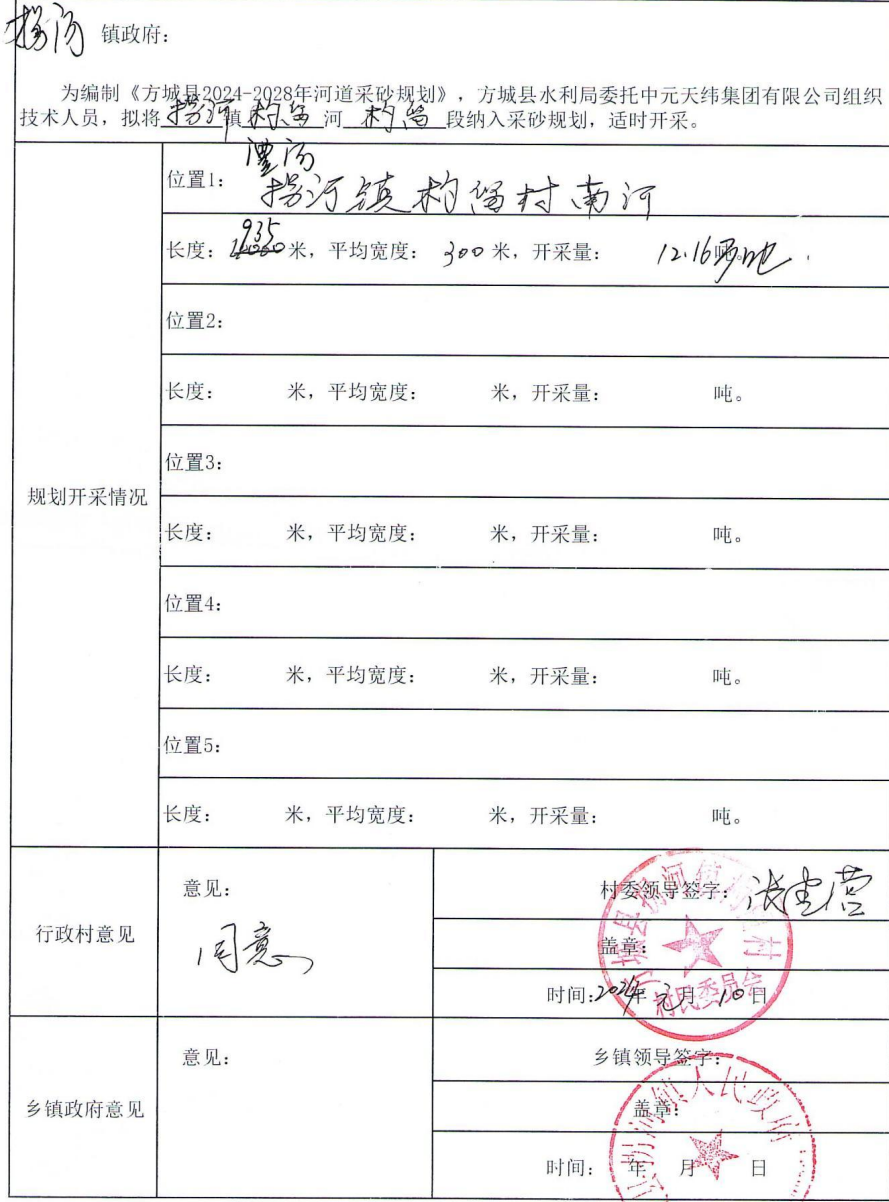 拐河 镇政府：
为编制《方城县2024-2028年河道采砂规划》，方城县水利局委托中元天纬集团有限公司组织
技术人员，拟将 拐河 镇 杓留 河 杓留 段纳入采砂规划，适时开采。
规划开采情况
澧河
位置1： 拐河镇杓留村南河
935
长度： 米，平均宽度： 300 米，开采量： 12.16万吨。
位置2：
长度： 米，平均宽度： 米，开采量： 吨。
位置3：
长度： 米，平均宽度： 米，开采量： 吨。
位置4：
长度： 米，平均宽度： 米，开采量： 吨。
位置5：
长度： 米，平均宽度： 米，开采量： 吨。
行政村意见
意见：
同意
村委领导签字：
盖章：
时间：2024年 元月 10日
村民委员会
乡镇政府意见
意见：
乡镇领导签字：
盖章：
时间： 年 月 日
镇人民政府